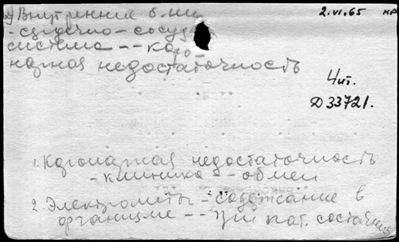 2.VI.65 НР
у) Внутренние б-ни
- сердечно - сосуд
система -- коро-
нарная недостаточность
Чит.
Д33721.
1. Коронарная недостаточность
- клиника - обмен
2. Электролиты - содержание в
организме -- при пат. состояниях